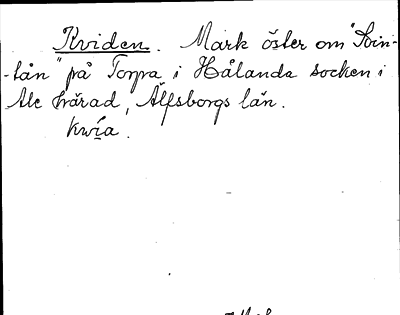 Kviden. Mark öster om "Svin-
-lån" på Torpa i Hålanda socken i
Ale härad, Älfsborgs län.
kwía.